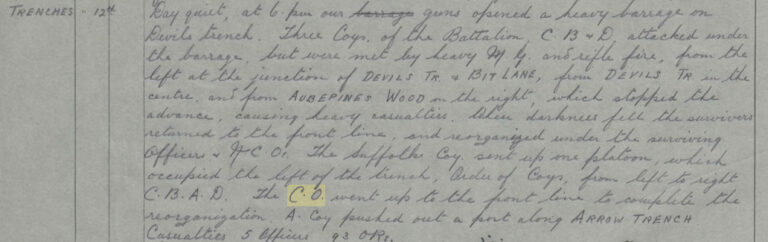 TRENCHES - 12th Day quiet, at 6 pm our barrage guns opened a heavy barrage on
Devils trench. Three Coys. of the Battalion, C. B & D. attacked under
the barrage, but were met by heavy M.G. and rifle fire, from the
left at the junction of DEVILS TR. & BIT LANE, from DEVILS TR in the
centre, and from AUBEPINES WOOD on the right, which stopped the
advance, causing heavy casualties. When darkness fell the survivors
returned to the front line, and reorganized under the surviving
Officers & N.C.O's. The Suffolks Coy. sent up one platoon, which
occupied the left of the trench, Order of Coys, from left to right
C. B. A. D. The C.O. went up to the front line to complete the
reorganization. A. Coy pushed out a post along ARROW TRENCH
Casualties 5 Officers 93 ORs.